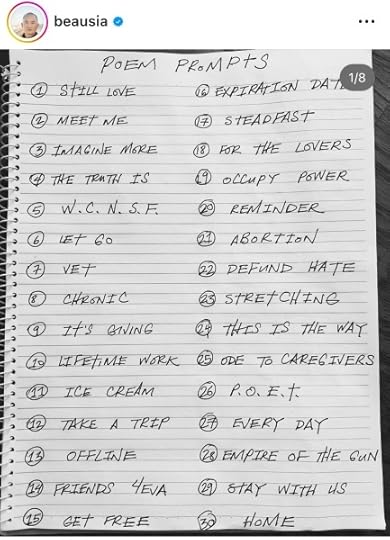 beausia
1/8
POEM PROMPTS
1 STILL LOVE
2 MEET ME
3 IMAGINE MORE
4 THE TRUTH IS
5 W.C.N.S.F.
6 LET GO
7 VET
8 CHRONIC
9 IT'S GIVING
10 LIFETIME WORK
11 ICE CREAM
12 TAKE A TRIP
13 OFFLINE
14 FRIENDS 4EVA
15 GET FREE
16 EXPIRATION DATE
17 STEADFAST
18 FOR THE LOVERS
19 OCCUPY POWER
20 REMINDER
21 ABORTION
22 DEFUND HATE
23 STRETCHING
24 THIS IS THE WAY
25 ODE TO CAREGIVERS
26 P.O.E.T.
27 EVERY DAY
28 EMPIRE OF THE GUN
29 STAY WITH US
30 HOME